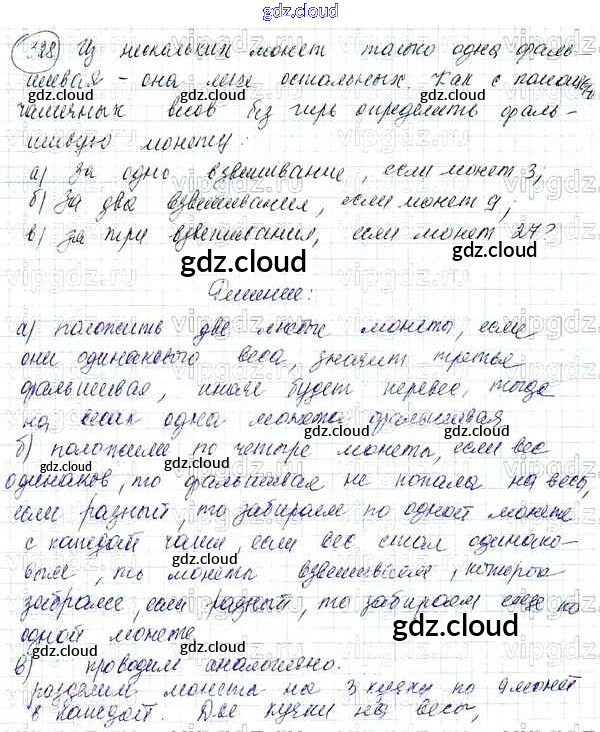 gdz.cloud
328) Из нескольких монет только одна фаль-
шивая - она легче остальных. Как с помощью
чашечных весов без гирь определить фаль-
шивую монету:
а) За одно взвешивание, если монет 3;
б) За два взвешивания, если монет 9;
в) за три взвешивания, если монет 27?
gdz.cloud
Решение:
а) положить две любые монеты, если
они одинакового веса, значит третья
фальшивая, иначе будет перевес, тогда
на одна монета фальшивая
б) положили по четыре монеты, если вес
одинаков, то фальшивая не попала на весы,
если разный, то забираем по одной монете
с каждой чаши, если вес стал одинако-
вым, то монеты взвешиваем, которые
забрали, если разный, то забираем еще по
одной монете
в) проводим аналогично.
разделим монеты на 3 кучки по 9 монет
в каждой. Две кучки на весы,